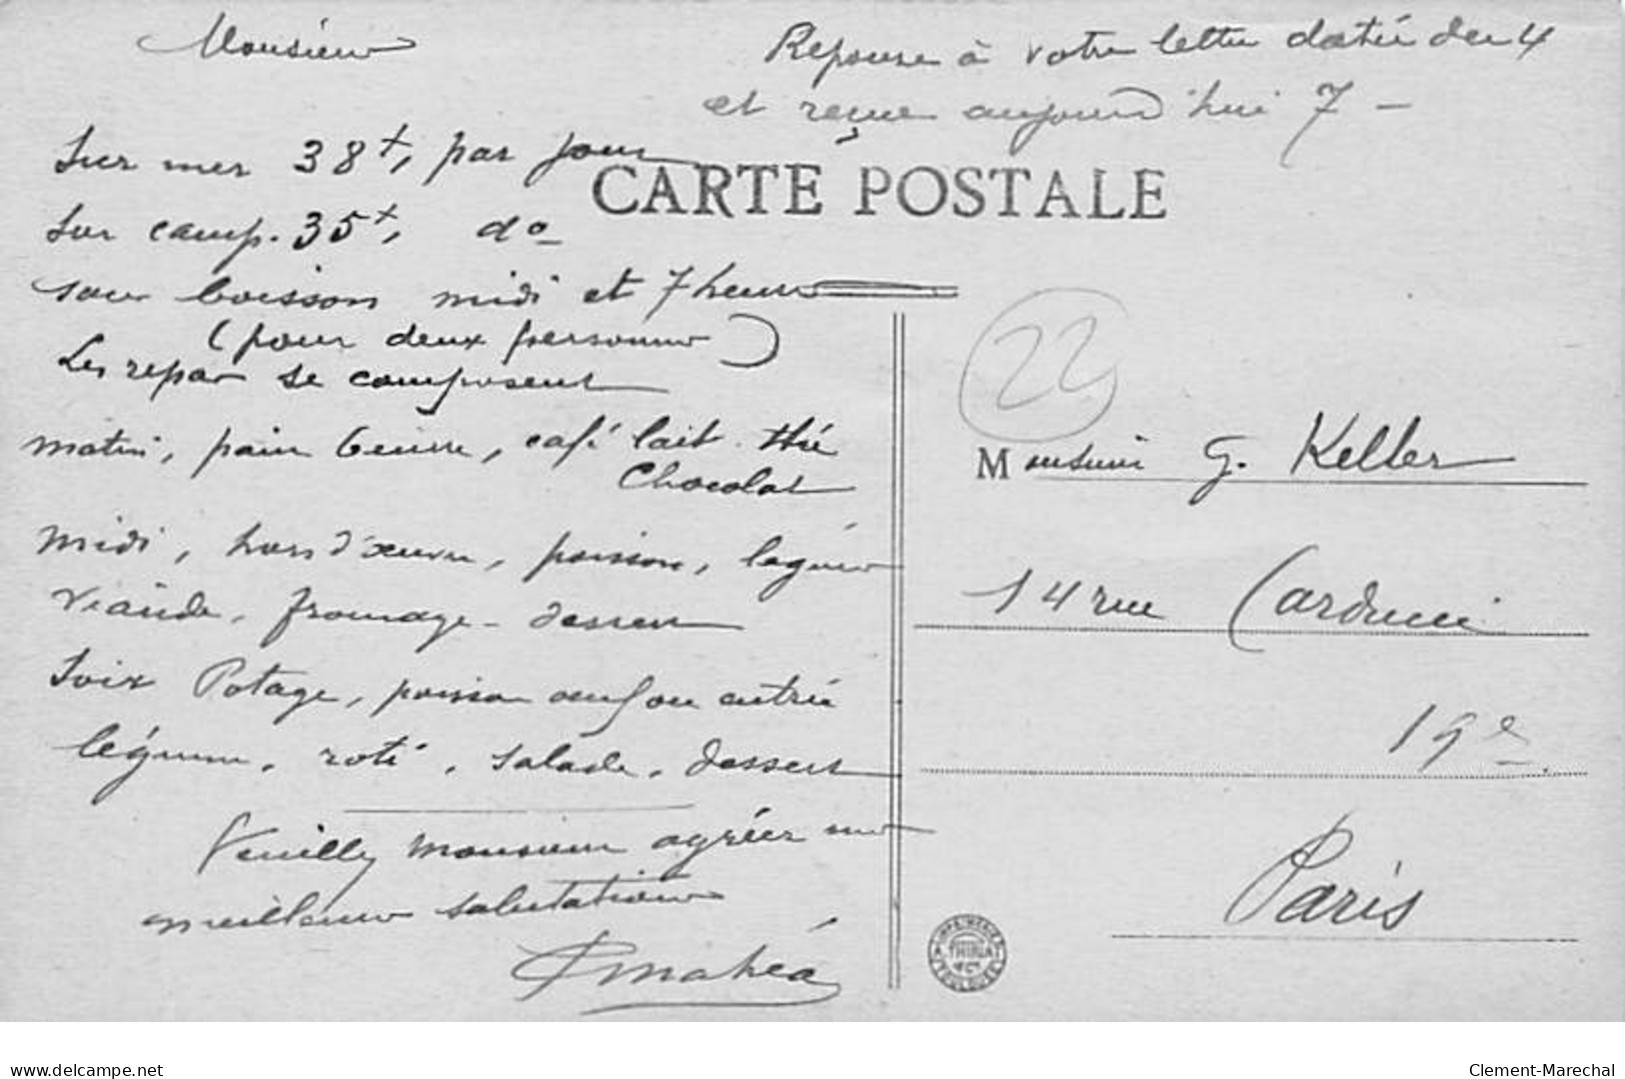 Monsieur
Reponse à votre lettre datée du 4
et reçue aujourd'hui 7 -
Sur mer 38f, par jour
CARTE POSTALE
Sur camp. 35f, do
sans boisson midi et 7 heures
(pour deux personnes)
Les repas se composent
matin, pain beurre, café lait thé
Chocolat
midi, hors d'œuvre, poisson, legumes
Viande, fromage - dessert
Soir Potage, poisson oeuf ou entrée
légume, roti, salade, dessert
Veuillez monsieur agréer mes
meilleures salutations
Mahéa
22
Monsieur G. Keller
14 rue Carducci
19e
Paris
IMPRIMERIE
THIRIAT
TOULOUSE
delcampe.net
Clement-Marechal